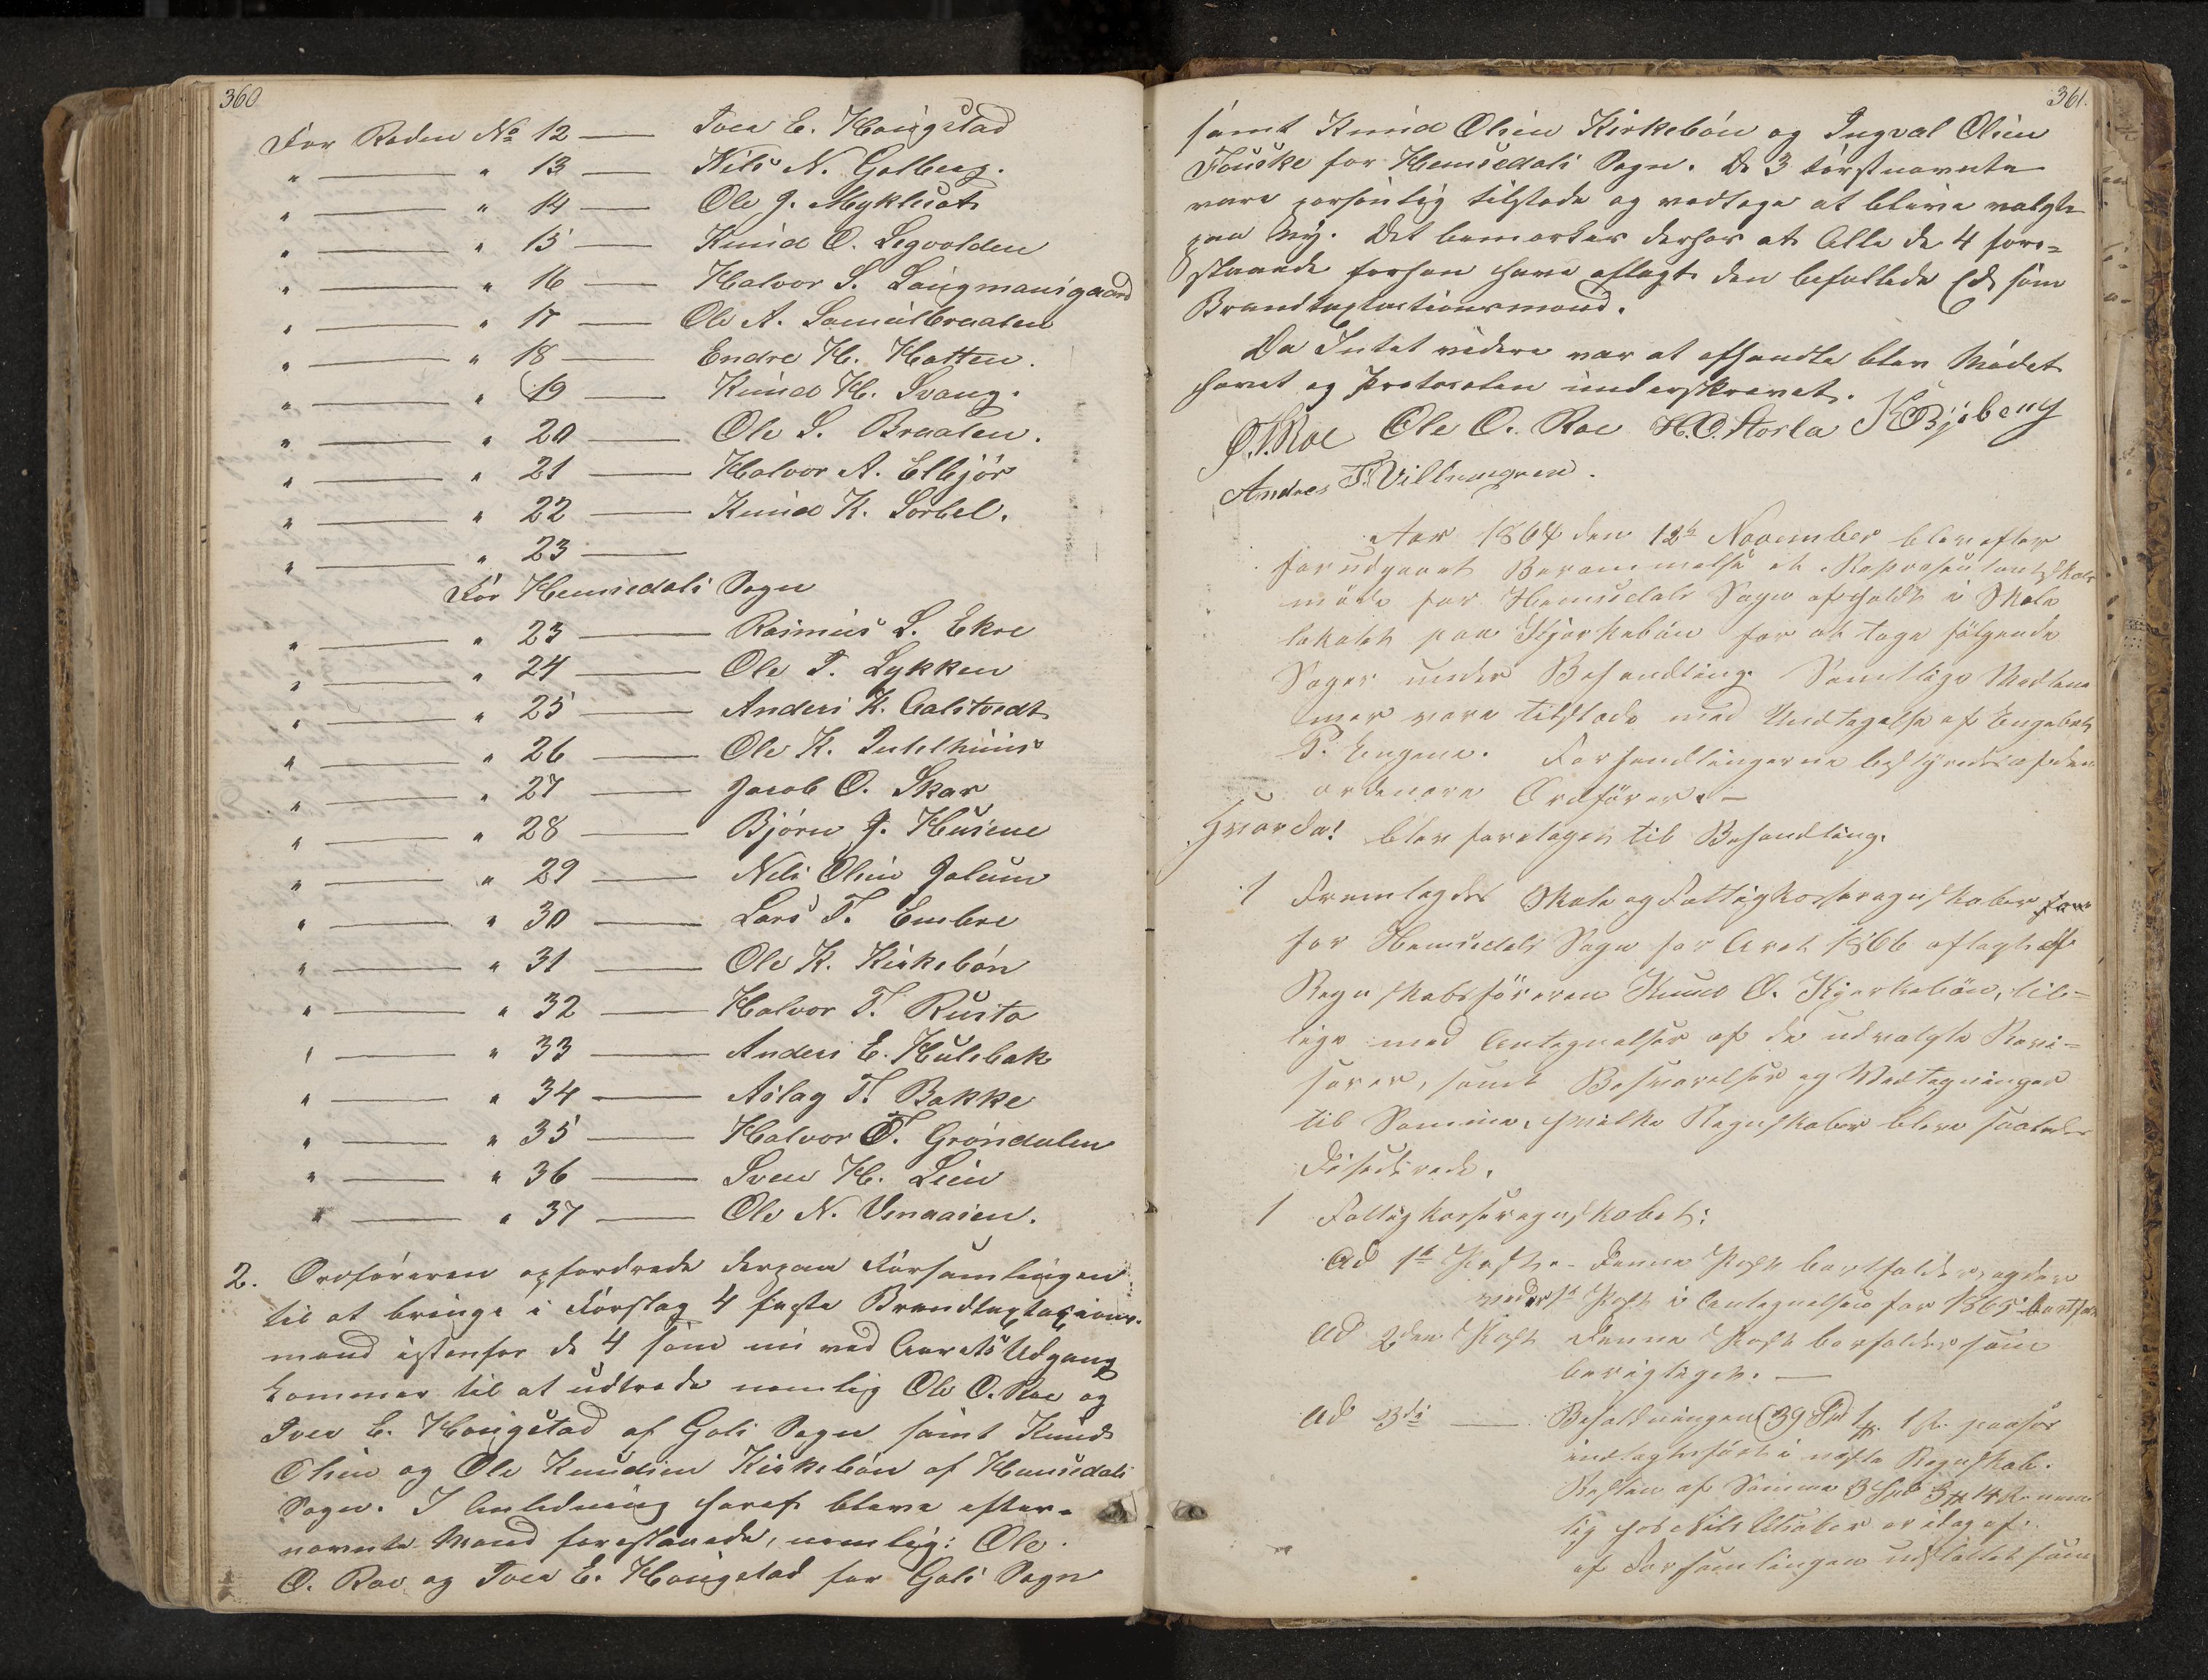 360
For Roden No 12 — Iver E. Haugstad
" — " 13 — Nils N. Golberg.
" — " 14 — Ole J. Myklust
" — " 15 — Knud O. Segvolden
" — " 16 — Halvor S. Langmansgaard
" — " 17 — Ole A. Samulbraaten
" — " 18 — Endre H. Hatten.
" — " 19 — Knud H. Svang.
" — " 20 — Ole S. Braaten.
" — " 21 — Halvor A. Elbjør
" — " 22 — Knud K. Sorbel.
" — " 23 —
For Hemsedals Sogn
" — " 23 — Rasmus S. Ekre
" — " 24 — Ole T. Lykken
" — " 25 — Anders K. Aalstvedt
" — " 26 — Ole K. Intelhuus
" — " 27 — Jacob O. Skar
" — " 28 — Bjørn J. Husene
" — " 29 — Nils Olsen Jolum
" — " 30 — Lars T. Embre
" — " 31 — Ole K. Kirkebøn
" — " 32 — Halvor T. Rusto
" — " 33 — Anders E. Hulebak
" — " 34 — Aslag T. Bakke
" — " 35 — Halvor T. Grøndalen
" — " 36 — Sven H. Lien
" — " 37 — Ole N. Ulsaasen.
2. Ordføreren opfordrede derpaa Forsamlingen
til at bringe i Forslag 4 faste Brandtaxtations-
mænd istenfor de 4 som nu ved Aarets Udgang
kommer til at udtræde nemlig Ole O. Roe og
Iver E. Haugstad af Gols Sogn samt Knud
Olsen og Ole Knudsen Kirkebøn af Hemsedals
Sogn. I Anledning heraf bleve efter-
nævnte Mænd foreslaaede, nemlig: Ole
O. Roe og Iver E. Haugstad for Gols Sogn
361.
samt Knud Olsen Kirkebøn og Ingval Olsen
Fauske for Hemsedals Sogn. De 3 førstnævnte
vare personlig tilstede og vedtoge at blive valgte
paa Ny. Det bemærkes derhos at Alle de 4 fore-
slaaede forhen have aflagt den befalede Ed som
Brandtaxtastionsmænd.
Da Intet videre var at afhandle blev Mødet
hævet og Protocolen underskrevet.
O.T. Roe Ole O. Roe H.O. Storla K Bjøberg
Andres T. Villengren.
Aar 1867 den 12te November blev efter
forudgaaet Berammelse et Repræsentantskabs
møde for Hemsedals Sogn afholdt i Skole
lokalet paa Kjørkebøn for at tage følgende
Sager under Behandling. Samtlige Medlem
mer vare tilstede med Undtagelse af Engebret
P. Engene. Forhandlingerne bestyredes af den
ordenære Ordfører. —
Hvorda! blev foretagen til Behandling.
1 Fremlagdes Skole og Fattigkasseregnskaber
for Hemsedals Sogn for Aaret 1866 aflagt af
Regnskabsføreren Knud O. Kjerkebøn, tili-
lige med Antegnelser af de udvalgte Revi-
sorer, samt Besvarelser og Vedtegninger
til Samme, hvilke Regnskaber bleve saaledes
Desiderede.
1 Fattigkasseregnskabet:
Ad 1te Post. - Denne Post bortfalder, og den
under 1te Post i Antegnelsen for 1865
Ad 2den Post Denne Post borfalder som
berigtiget. —
Ad 3die — Beholdningen (39 Spd 1 paafør
indtægtsført i næste Regnskab.
Resten af Samme 3 Spd nem
lig hos Nils er idag af
af Forsamlingen udsattet som